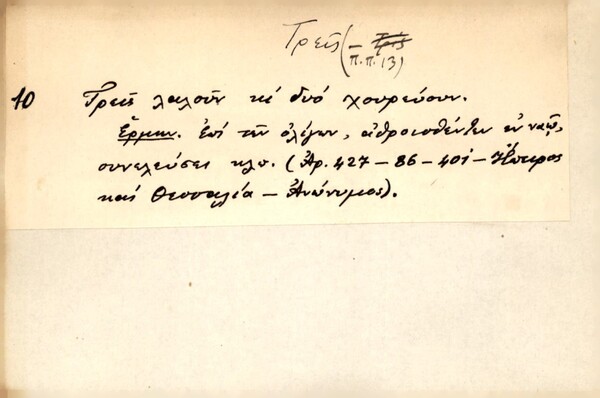 Τρεῖς (– Τρίς
π.π. 13)
10 Τρεῖς λαλοῦν κι δυό χουρεύουν.
Ἑρμην. Ἐπί τῶν ὀλίγων, ἀθροισθέντων ἐν ναῷ,
συνελεύσει κλπ. (Ἀρ. 427 – 86 – 401 – Ἤπειρος
καί Θεσσαλία – Ἀνώνυμος).